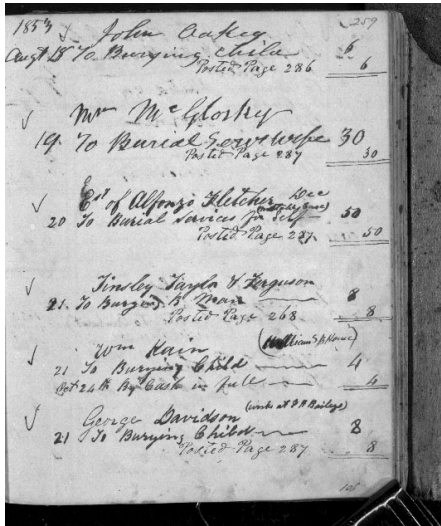 1853 259
John Oakey
Augt 18 To Burying Child 6
Posted Page 286 6
Mr McGlosky
19. To Burial Serv wife 30
Posted Page 287 30
Est of Alfonzo Fletcher Dec
20 To Burial Services for Self 50
Posted Page 287. 50
Tinsley Taylor & Ferguson
21. To Burying B. Man 8
Posted Page 268 8
Wm Kain
21 To Burying Child 4
Oct 24th By Cash in full 4
George Davidson (works at Baileys)
21 To Burying Child 8
Posted Page 287 8